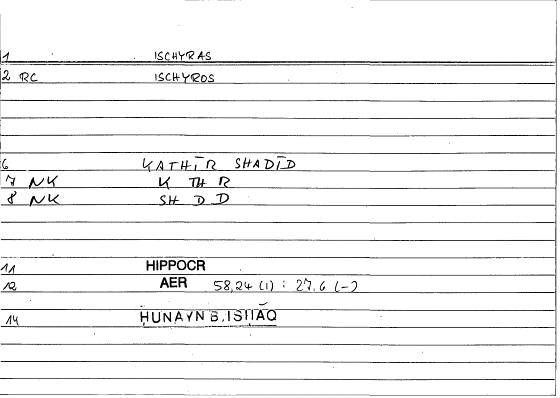 1 ISCHYRAS
2 RC ISCHYROS
6 KATHĪR SHADĪD
7 NK K TH R
8 NK SH D D
11 HIPPOCR
12 AER 58,24 (1) : 27.6 (-)
14 ḤUNAYN B. ISḤĀQ